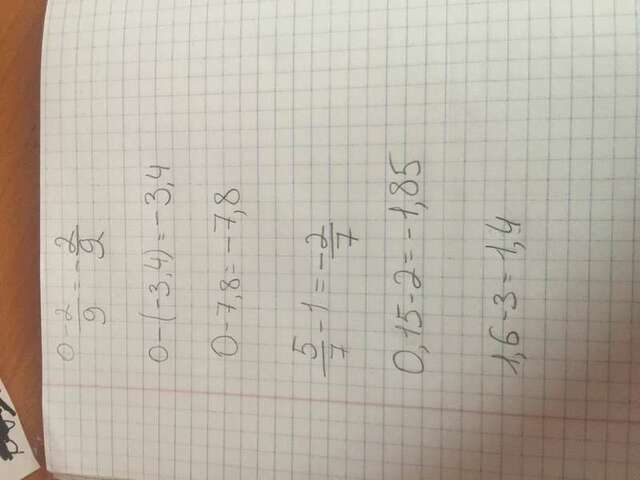 0 - 2/9 = - 2/9
0 - (-3,4) = -3,4
0 - 7,8 = -7,8
5/7 - 1 = - 2/7
0,15 - 2 = -1,85
1,6 - 3 = 1,4